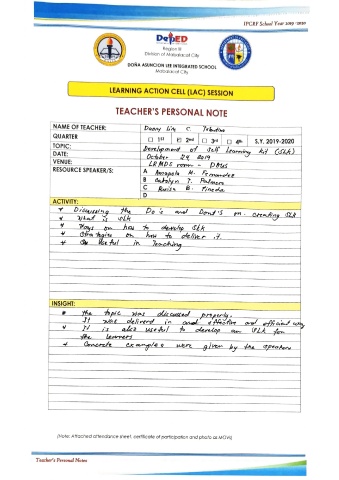 IPCRF School Year 2019-2020
DepED
Region III
Division of Mabalacat City
DOÑA ASUNCION LEE INTEGRATED SCHOOL
Mabalacat City
LEARNING ACTION CELL (LAC) SESSION
TEACHER'S PERSONAL NOTE
NAME OF TEACHER: Danny Liz C.
QUARTER 1st 2nd 3rd 4th S.Y. 2019-2020
TOPIC: Development of Self Learning Kit (SLK)
DATE: October 24, 2019
VENUE: LRMDS room -
RESOURCE SPEAKER/S: A M. Fernandez
B T.
C B. Pineda
D
ACTIVITY:
Discussing the Do's and Dont's on creating SLK
What is SLK
Ways on how to develop SLK
Strategies on how to deliver it.
Useful in Teaching
INSIGHT:
The topic was discussed properly.
It was delivered in and effective and efficient way
It is also useful to develop an SLK for
the learners
Concrete examples were given by the speakers
(Note: Attached attendance sheet, certificate of participation and photo as MOVs)
Teacher's Personal Notes